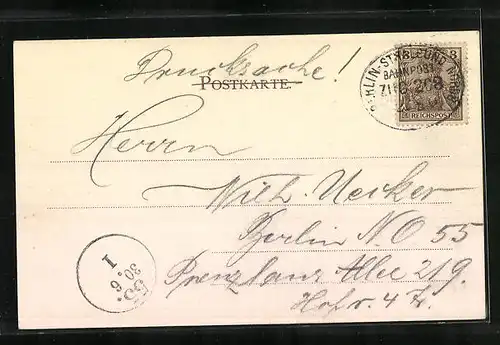 Drucksache!
POSTKARTE.
BERLIN-STRALSUND
BAHNPOST
ZUG 208
3
REICHSPOST
Herrn
Wilh. Uecker
Berlin NO 55
Prenzlauer Allee 219.
Hof v. 4 Tr.
55
30. 6.
1